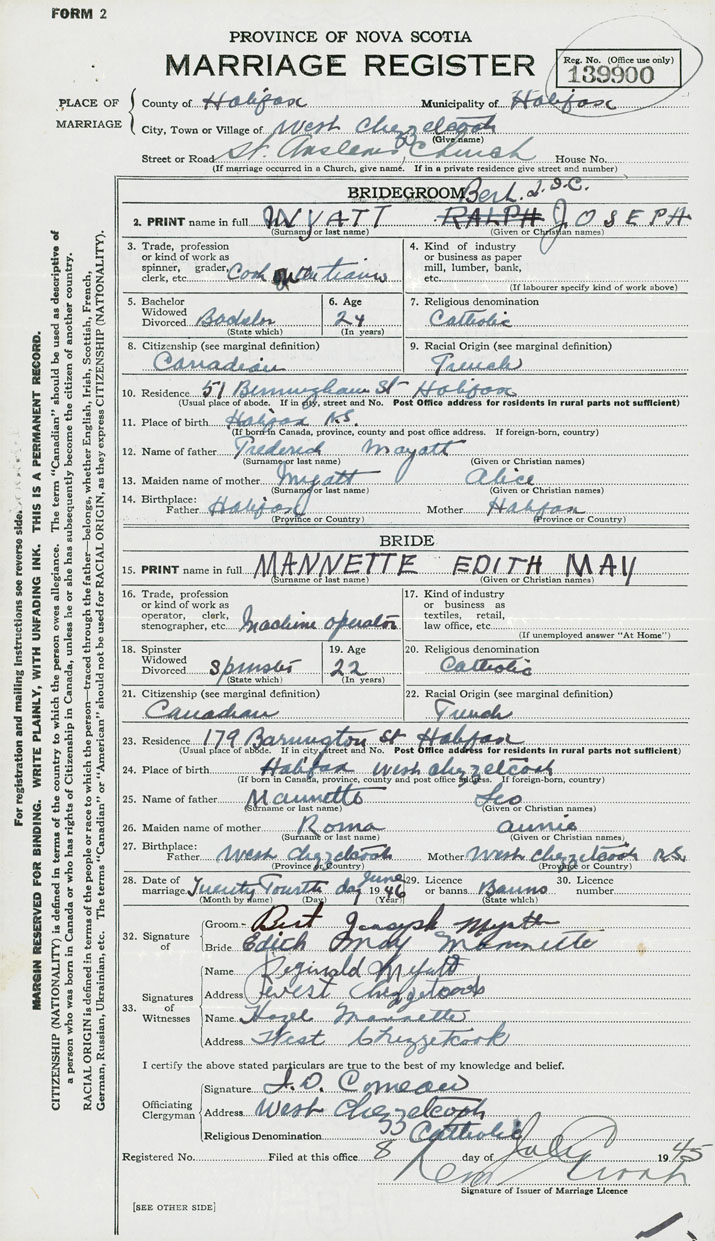 FORM 2
PROVINCE OF NOVA SCOTIA
MARRIAGE REGISTER
Reg. No. (Office use only)
139900
PLACE OF MARRIAGE
County of Halifax Municipality of Halifax
City, Town or Village of West Chezzetcook
(Give name)
Street or Road St. Anslems Church House No.
(If marriage occurred in a Church, give name. If in a private residence give street and number)
BRIDEGROOM Bert
2. PRINT name in full WYATT RALPH JOSEPH
(Surname or last name) (Given or Christian names)
3. Trade, profession or kind of work as spinner, grader, clerk, etc.
4. Kind of industry or business as paper mill, lumber, bank, etc.
(If labourer specify kind of work above)
5. Bachelor Widowed Divorced Bachelor
(State which)
6. Age 24
(In years)
7. Religious denomination
Catholic
8. Citizenship (see marginal definition)
Canadian
9. Racial Origin (see marginal definition)
French
10. Residence 51 Birmingham St Halifax
(Usual place of abode. If in city, street and No. Post Office address for residents in rural parts not sufficient)
11. Place of birth Halifax N.S.
(If born in Canada, province, county and post office address. If foreign-born, country)
12. Name of father Frederick Myatt
(Surname or last name) (Given or Christian names)
13. Maiden name of mother Myatt Alice
(Surname or last name) (Given or Christian names)
14. Birthplace:
Father Halifax Mother Halifax
(Province or Country) (Province or Country)
BRIDE
15. PRINT name in full MANNETTE EDITH MAY
(Surname or last name) (Given or Christian names)
16. Trade, profession or kind of work as operator, clerk, stenographer, etc. Machine operator
17. Kind of industry or business as textiles, retail, law office, etc.
(If unemployed answer "At Home")
18. Spinster Widowed Divorced Spinster
(State which)
19. Age 22
(In years)
20. Religious denomination
Catholic
21. Citizenship (see marginal definition)
Canadian
22. Racial Origin (see marginal definition)
French
23. Residence 179 Barrington St Halifax
(Usual place of abode. If in city, street and No. Post Office address for residents in rural parts not sufficient)
24. Place of birth Halifax West Chezzetcook
(If born in Canada, province, county and post office address. If foreign-born, country)
25. Name of father Mannette Leo
(Surname or last name) (Given or Christian names)
26. Maiden name of mother Roma Annie
(Surname or last name) (Given or Christian names)
27. Birthplace:
Father West Chezzetcook Mother West Chezzetcook N.S.
(Province or Country) (Province or Country)
28. Date of marriage Twenty Fourth day June 1946
(Month by name) (Day) (Year)
29. Licence or banns Banns
(State which)
30. Licence number
32. Signature of
Groom Bert Joseph Myatt
Bride Edith May Mannette
33. Signatures of Witnesses
Name Reginald Myatt
Address West Chezzetcook
Name Hazel Mannette
Address West Chezzetcook
I certify the above stated particulars are true to the best of my knowledge and belief.
Officiating Clergyman
Signature J. D. Comeau
Address West Chezzetcook
Religious Denomination Catholic
Registered No. Filed at this office 8 day of July 1945
Signature of Issuer of Marriage Licence
[SEE OTHER SIDE]
For registration and mailing instructions see reverse side.
MARGIN RESERVED FOR BINDING. WRITE PLAINLY, WITH UNFADING INK. THIS IS A PERMANENT RECORD.
CITIZENSHIP (NATIONALITY) is defined in terms of the country to which the person owes allegiance. The term "Canadian" should be used as descriptive of
a person who was born in Canada or who has rights of Citizenship in Canada, unless he or she has subsequently become the citizen of another country.
RACIAL ORIGIN is defined in terms of the people or race to which the person—traced through the father—belongs, whether English, Irish, Scottish, French,
German, Russian, Ukrainian, etc. The terms "Canadian" or "American" should not be used for RACIAL ORIGIN, as they express CITIZENSHIP (NATIONALITY).